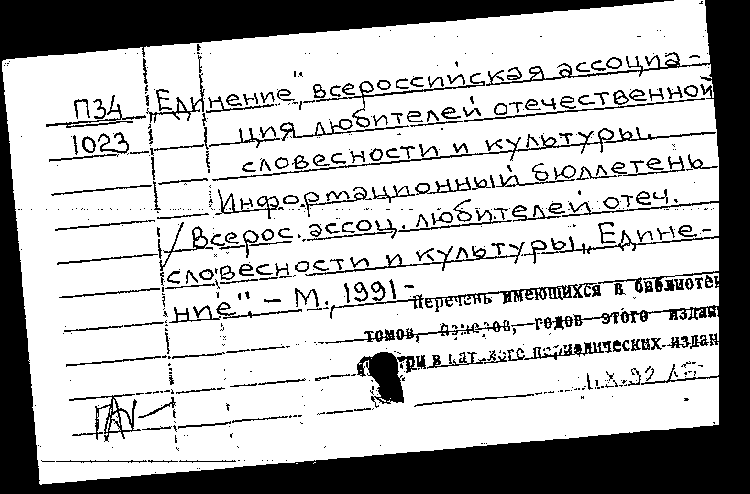 П34 „Единение", всероссийская ассоциа-
1023 ция любителей отечественной
словесности и культуры.
Информационный бюллетень
/ Всерос. ассоц. любителей отеч.
словесности и культуры „Едине-
ние". – М., 1991 -
Перечень имеющихся в библиотеке
томов, номеров, годов этого издан
смотри в каталоге периодических издан
1.X.92